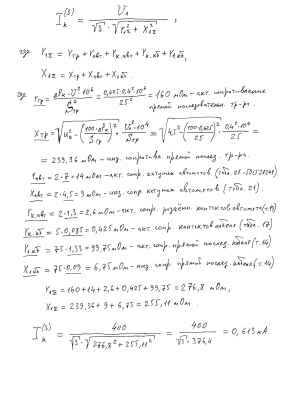 I_k^(3) = U_1 / (√3 · √(r_1Σ² + X_1Σ²)) ,
где r_1Σ = r_тр + r_авт + r_к.авт + r_к.кб + r_1кб ,
X_1Σ = X_тр + X_авт + X_1кб .
где r_тр = ΔP_k · U² · 10⁶ / S_тр² = 0,625 · 0,4² · 10⁶ / 25² = 160 мОм - акт. сопротивление
прямой последоват. тр-ра.
X_тр = √(U_k² - (100 · ΔP_k / S_тр)²) · U² · 10⁴ / S_тр = √(4,5² - (100 · 0,625 / 25)²) · 0,4² · 10⁴ / 25 =
= 239,36 мОм - инд. сопротивл. прямой послед. тр-ра.
r_авт = 2 · 7 = 14 мОм - акт. сопр. катушек автоматов (табл. 21 ГОСТ 28249)
X_авт = 2 · 4,5 = 9 мОм - инд. сопр. катушек автоматов (табл. 21).
r_к.авт = 2 · 1,3 = 2,6 мОм - акт. сопр. разъёмн. контактов автомата
r_к.кб = 5 · 0,085 = 0,425 мОм - акт. сопр. контактов кабеля (табл. 17)
r_1кб = 75 · 1,33 = 99,75 мОм - акт. сопр. прямой послед. кабеля (т. 14)
X_1кб = 75 · 0,09 = 6,75 мОм - инд. сопр. прямой послед. кабеля (т. 14)
r_1Σ = 160 + 14 + 2,6 + 0,425 + 99,75 = 276,8 мОм ,
X_1Σ = 239,36 + 9 + 6,75 = 255,11 мОм .
I_k^(3) = 400 / (√3 · √(276,8² + 255,11²)) = 400 / (√3 · 376,4) = 0,613 кА.